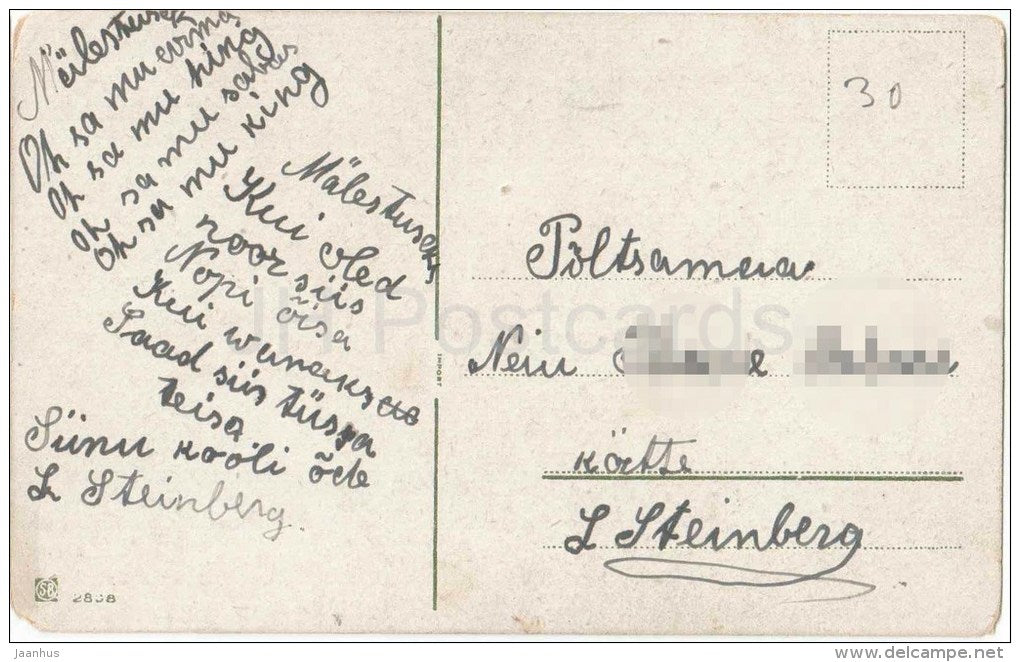 Mälestusek
Oh sa mu armas
Oh sa mu hing
Oh sa mu sabas
Oh sa mu king
Mälestuseks
Kui oled
noor siis
Nopi õisa
Kui wanaks
Saad siis tüssa
teisa
Siinu kooli õde
L Steinberg.
58
2858
IMPORT
30
Põltsamaa
Neiu
kätte
L Steinberg
JH Postcards
Jaanhus
www.delcampe.net